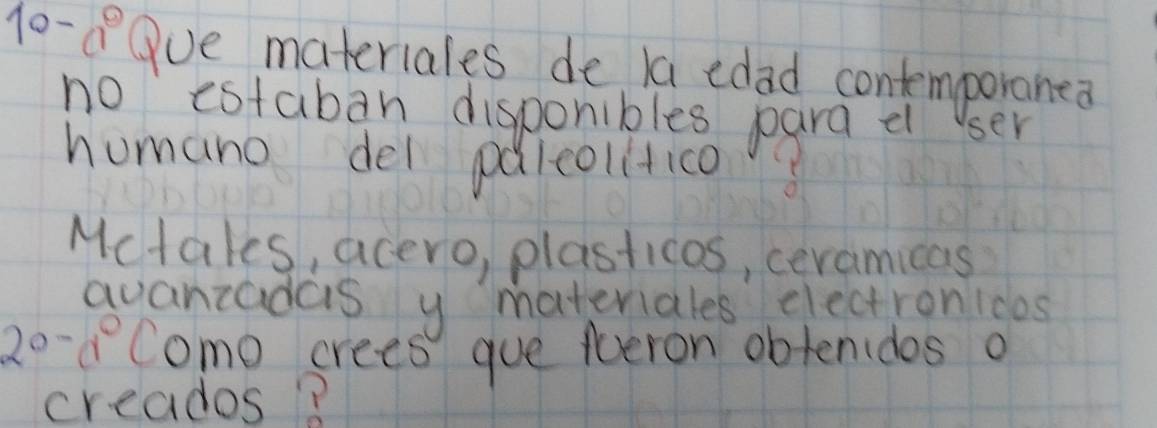 10-¿Que materiales de la edad contemporanea
no estaban disponibles para el ser
humano del paleolítico?
Metales, acero, plasticos, ceramicas
avanzadas y materiales electronicos
20-¿Como crees que fueron obtenidos o
creados?